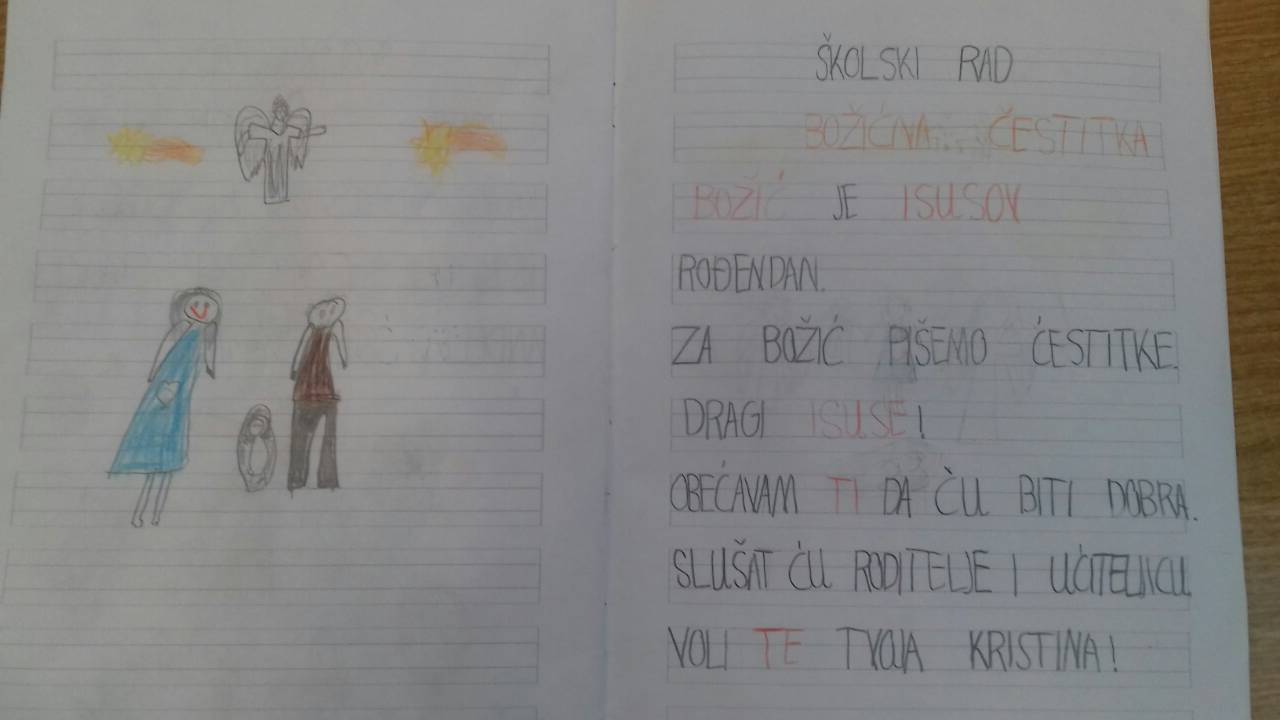 ŠKOLSKI RAD
BOŽIĆNA... ČESTITKA
BOŽIĆ JE ISUSOV
ROĐENDAN.
ZA BOŽIĆ PIŠEMO ĆESTITKE.
DRAGI ISUSE!
OBEĆAVAM TI DA ĆU BITI DOBRA.
SLUŠAT ĆU RODITELJE I UĆITELJICU.
VOLI TE TVOJA KRISTINA!